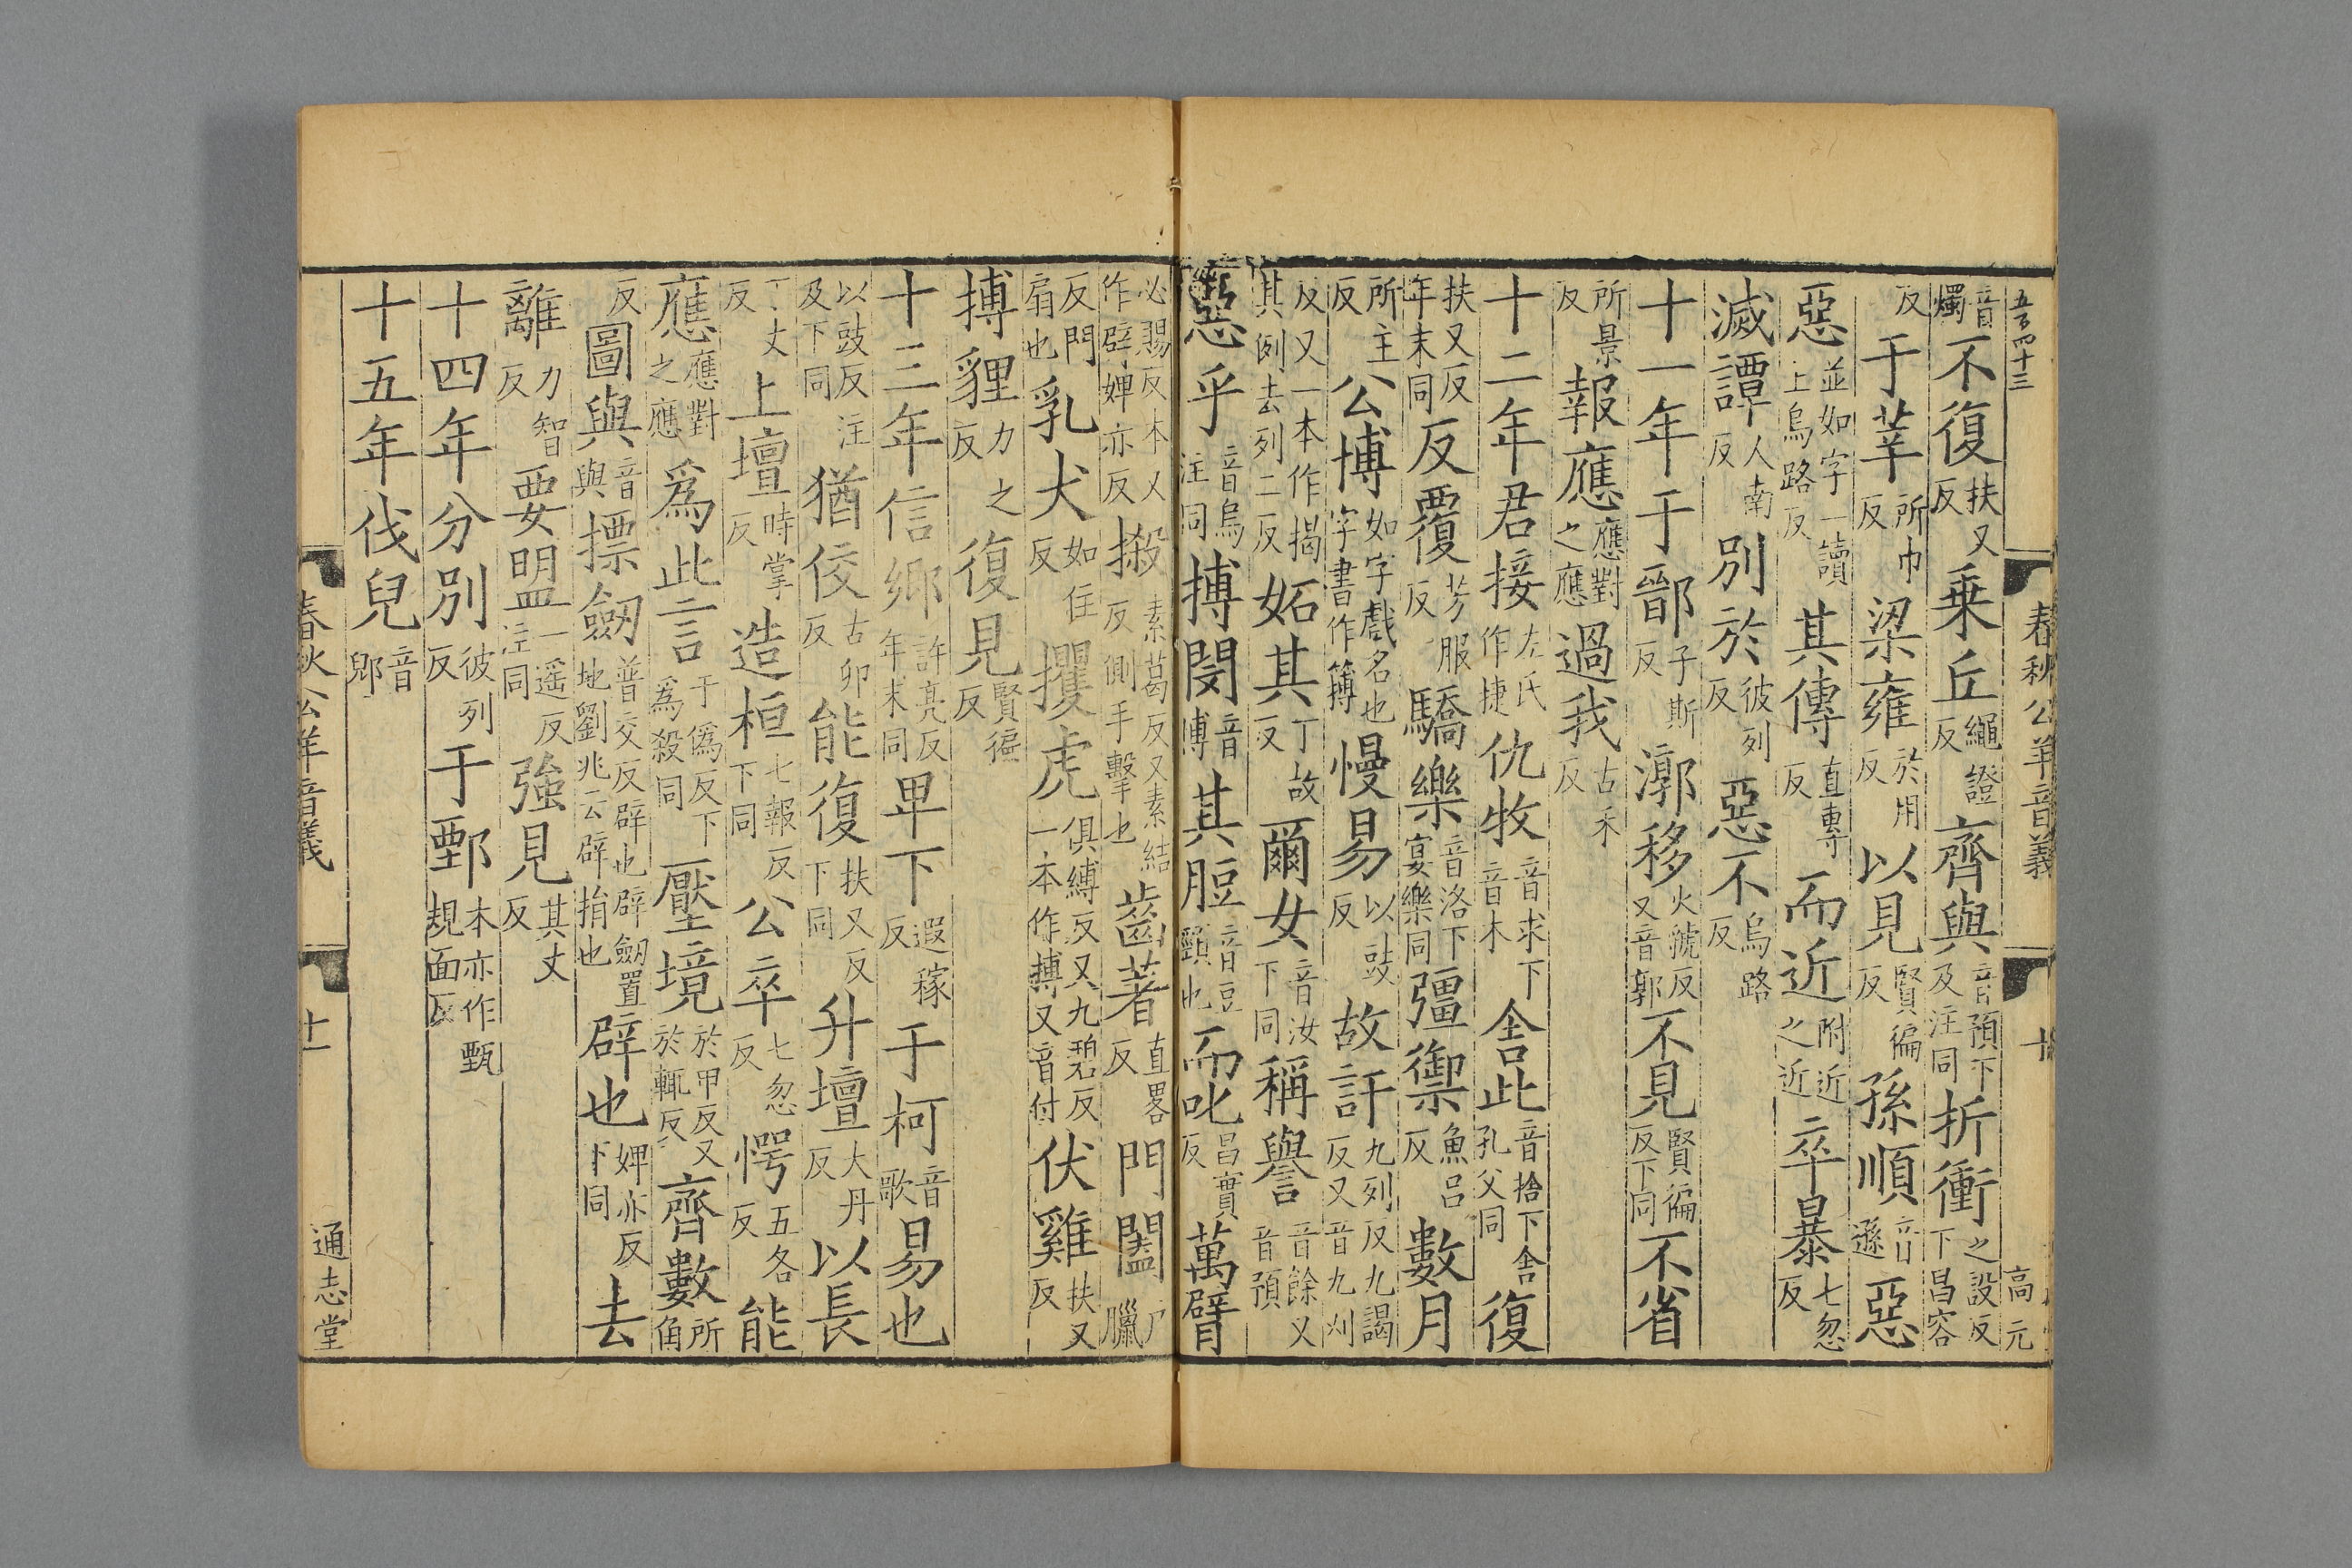 五百四十三 春秋公羊音義 十 高元
音燭不復扶又反乗丘繩證反齊與音預下及注同折衝之設反下昌容
反于莘所巾反梁雍於用反以見賢徧反孫順音遜惡
惡並如字一讀上烏路反其傳直專反而近附近之近卒暴七忽反
滅譚人南反別於彼列反惡不烏路反
十一年于鄑子斯反漷移火虢反又音郭不見賢徧反下同不省
所景反報應應對之應過我古禾反
十二年君接左氏作捷仇牧音求下音木舍此音捨下舍孔父同復
扶又反年末同反覆芳服反驕樂音洛下宴樂同彊禦魚呂反數月
所主反公博如字戲名也字書作簙慢易以豉反故訐九列反九謁反又音九刈
反又一本作揭其例去列二反妬其丁故反爾女音汝下同稱譽音餘又音預
惡乎音烏注同搏閔音博其脰音豆頸也而叱昌實反萬臂
必賜反本又作辟婢亦反摋素葛反又素結反側手擊也齒著直畧反門闔戶臘
反門扇也乳犬如住反攫虎俱縛反又九碧反一本作搏又音付伏雞扶又反
搏貍力之反復見賢徧反
十三年信鄉許亮反年末同卑下遐稼反于柯音歌易也
以豉反注及下同猶佼古卯反能復扶又反下同升壇大丹反以長
丁丈反上壇時掌反造桓七報反下同公卒七忽反愕五各反能
應應對之應爲此言于僞反下爲殺同壓境於甲反又於輒反齊數所角
反圖與音與摽劒普交反辟也辟劒置地劉兆云辟捐也辟也婢亦反下同去
離力智反要盟一遥反注同強見其丈反
十四年分別彼列反于鄄本亦作甄規面反
十五年伐兒音郳
春秋公羊音義 十一 通志堂